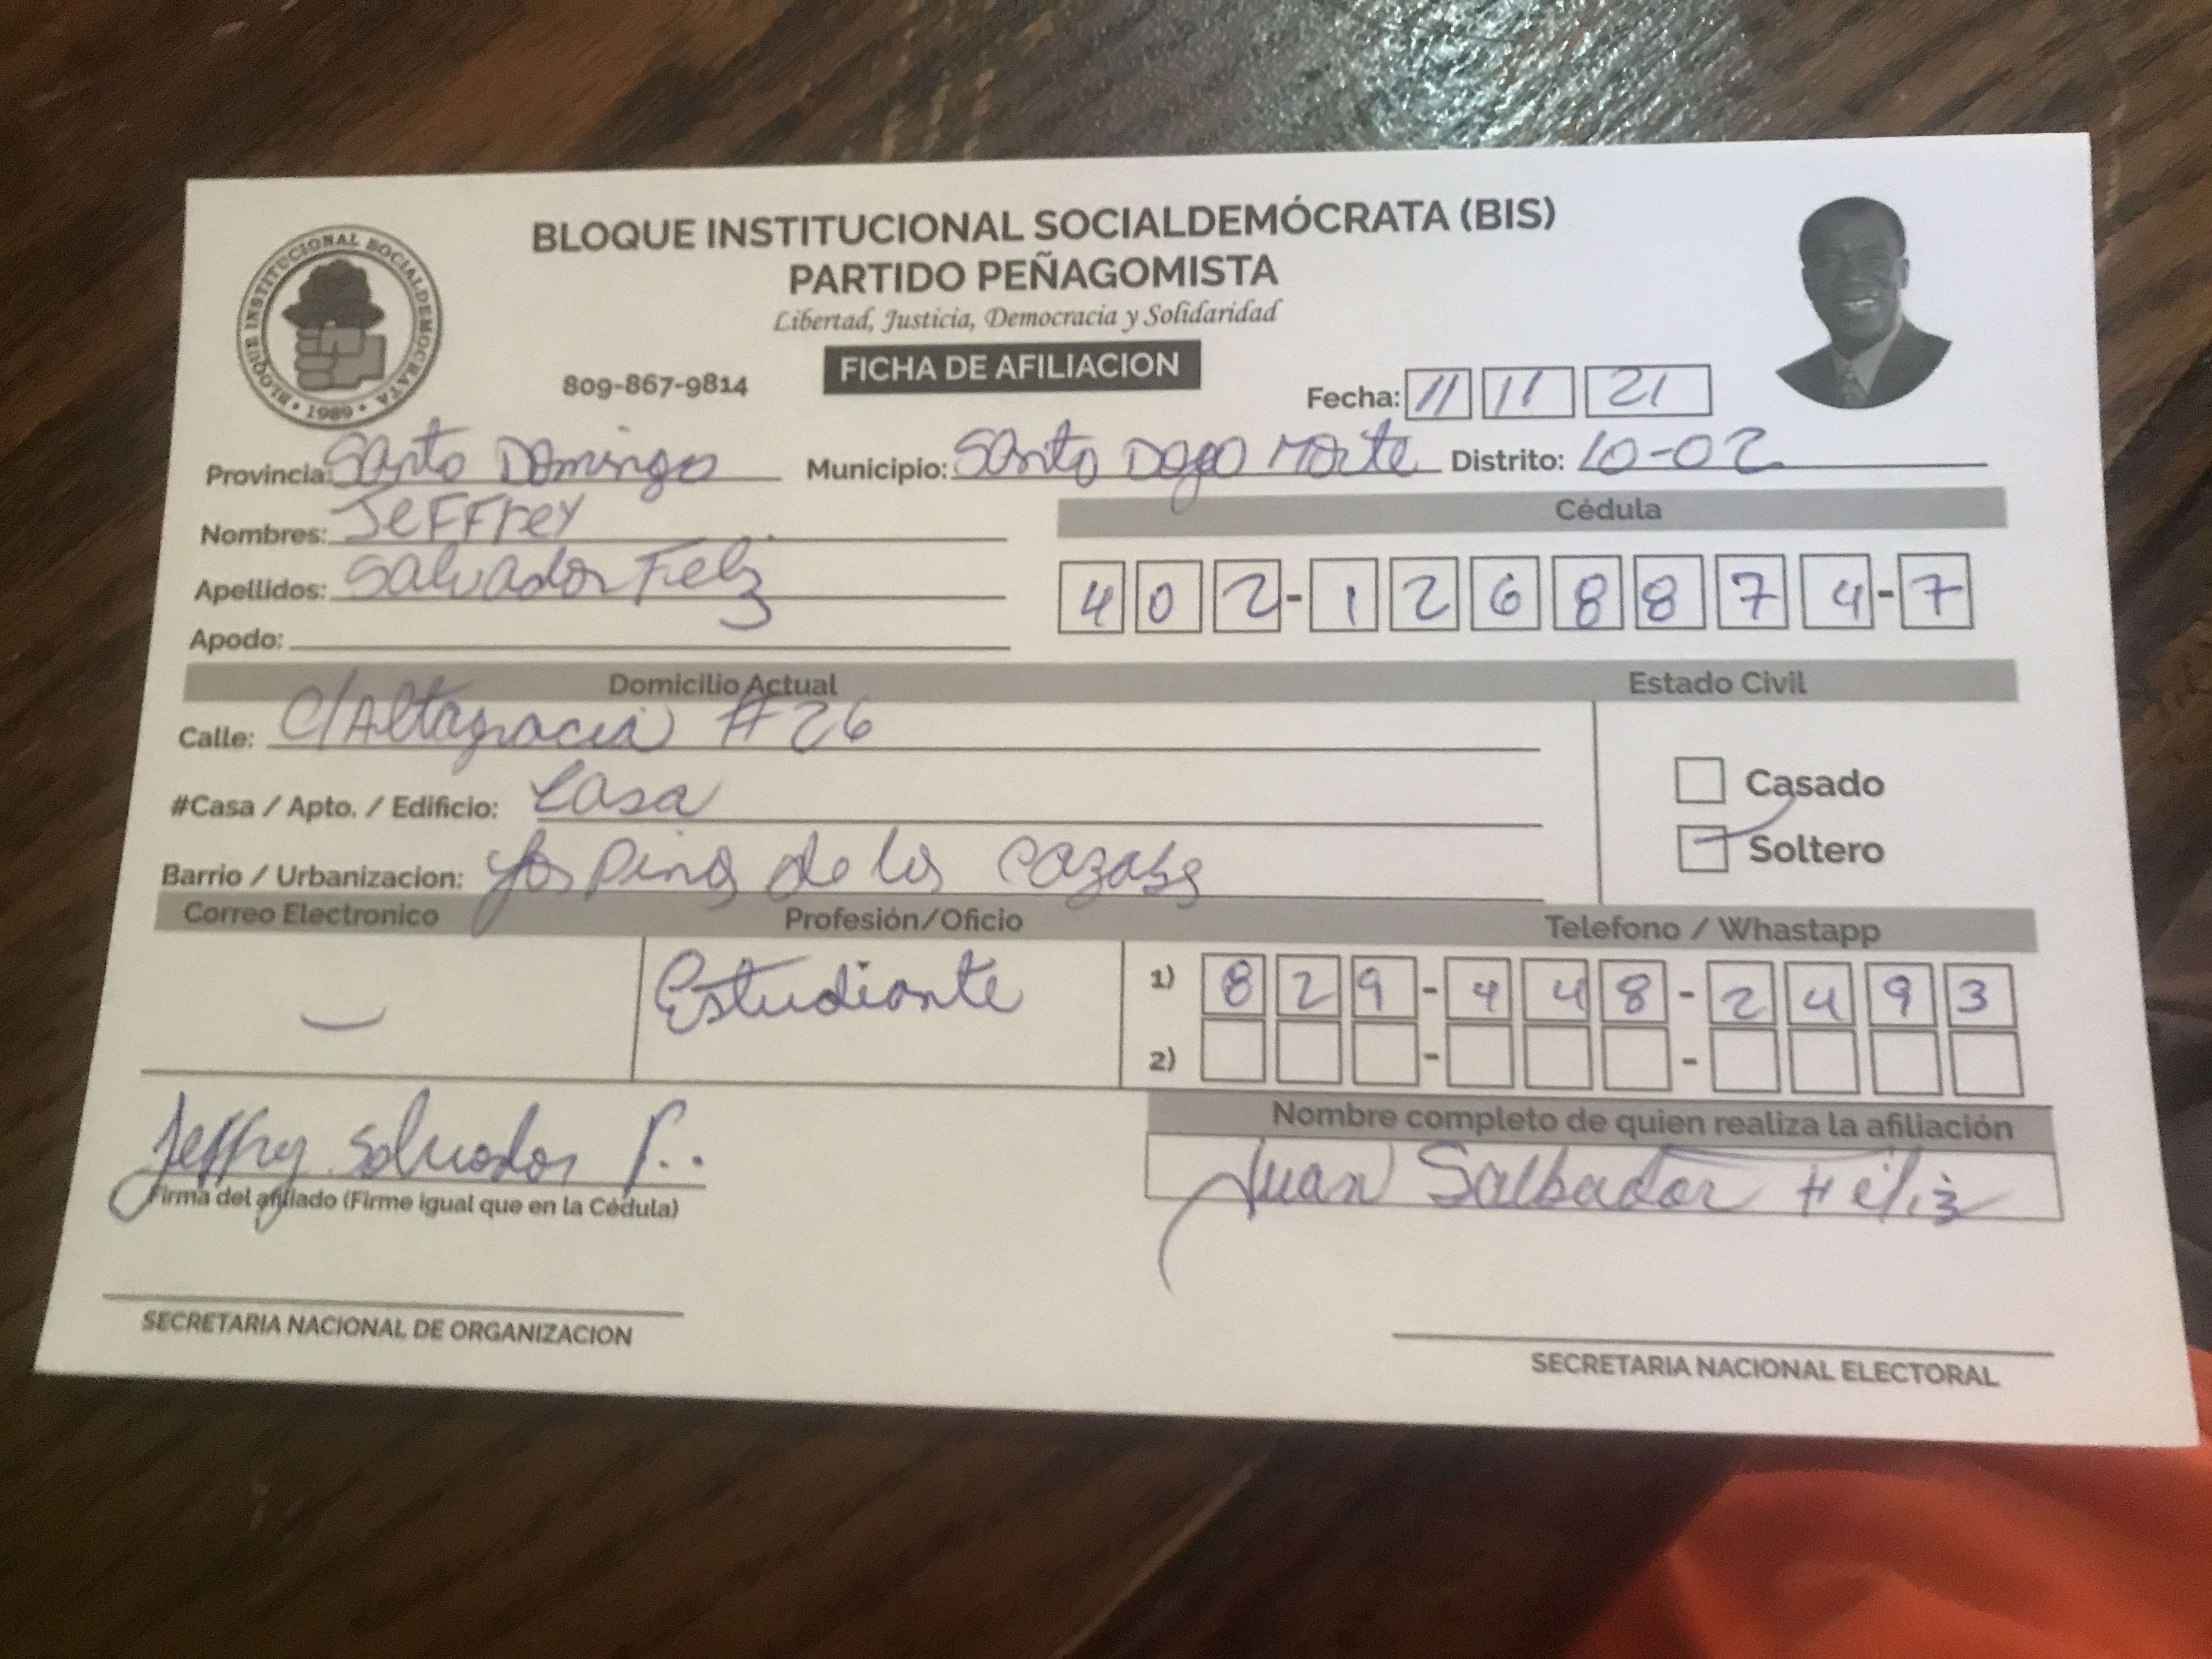 BLOQUE INSTITUCIONAL SOCIALDEMÓCRATA (BIS)
PARTIDO PEÑAGOMISTA
Libertad, Justicia, Democracia y Solidaridad
BLOQUE INSTITUCIONAL SOCIALDEMOCRATA • 1989 •
FICHA DE AFILIACION
809-867-9814
Fecha: 11 11 21
Provincia: Santo Domingo Municipio: Santo Dogo Norte Distrito: 10-02
Nombres: Jeffrey
Cédula
Apellidos: Salvador Feliz
402-1268874-7
Apodo:
Domicilio Actual Estado Civil
Calle: C/Altagracia #26
Casado
#Casa / Apto. / Edificio: Casa
Soltero
Barrio / Urbanizacion: de los
Correo Electronico Profesión/Oficio Telefono / Whastapp
Estudiante 1) 829-448-2493
2) - -
Nombre completo de quien realiza la afiliación
Jeffry Salvador F..
Juan Salbador Féliz
Firma del afiliado (Firme igual que en la Cédula)
SECRETARIA NACIONAL DE ORGANIZACION
SECRETARIA NACIONAL ELECTORAL